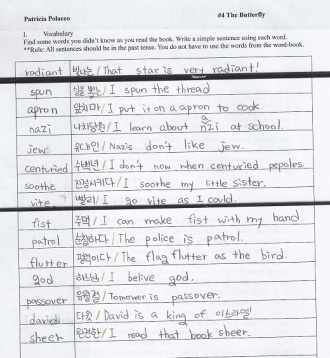 Patricia Polacco #4 The Butterfly
I. Vocabulary
Find some words you didn't know as you read the book. Write a simple sentence using each word.
**Rule: All sentences should be in the past tense. You do not have to use the words from the word-book.
radiant 빛나는/That star is very radiant!
spun 실을 뽑는/I spun the thread
apron 앞치마/I put it on a apron to cook.
nazi 나치당원/I learn about a nzi at school.
jew 유대인/Nazis don't like jew.
centuried 수백년/I don't now when centuried pepoles.
soothe 진정시키다/I soothe my little sister.
vite 빨리/I go vite as I could.
fist 주먹/I can make fist with my hand.
patrol 순찰하다/The police is patrol.
flutter 펄럭이다/The flag flutter as the bird.
god 하느님/I belive god.
passover 유월절/Tomower is passover.
david 다윗/David is a king of 이스라엘
sheer /I read that book sheer.